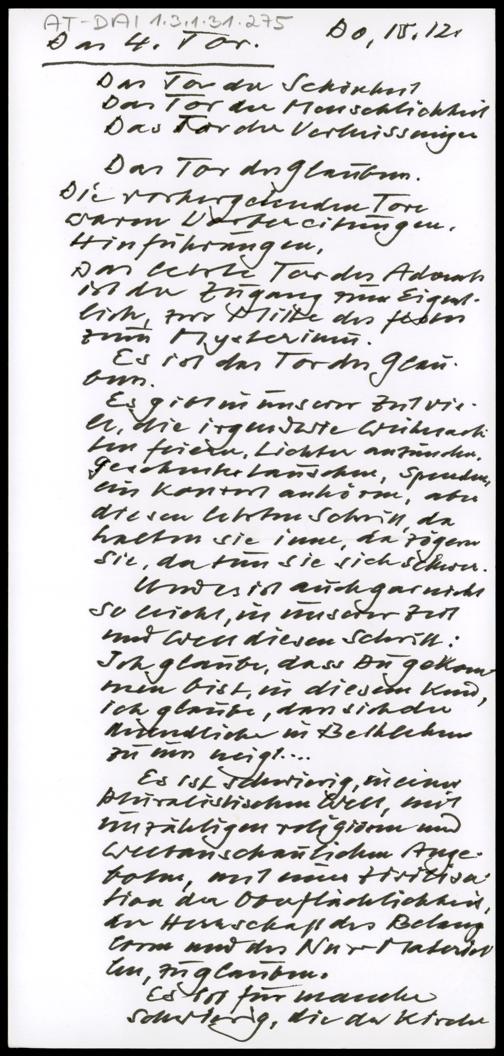 AT-DAI 1.3.1.31.275
Das 4. Tor. Do, 15.12.
Das Tor der Schönheit
Das Tor der Menschlichkeit
Das Tor der Verheissungen
Das Tor des Glaubens.
Die vorhergehenden Tore
waren Vorbereitungen,
Hinführungen,
Das letzte Tor des Advents
ist der Zugang zum Eigent-
lich, zur Mitte des Festes
zum Mysterium.
Es ist das Tor des Glau-
bens.
Es gibt in unserer Zeit vie-
le, die irgendwie Weihnach-
ten feiern, Lichter anzünden,
Geschenke tauschen, Spenden,
ein Konzert anhören, aber
diesen letzten Schritt, da
halten sie inne, da zögern
sie, da tun sie sich schwer.
Und es ist auch gar nicht
so leicht, in unserer Zeit
und Welt diesen Schritt:
Ich glaube, dass Du gekom-
men bist, in diesem Kind,
ich glaube, dass sich der
Unendliche in Bethlehem
zu uns neigt....
Es ist schwierig, in einer
pluralistischen Welt, mit
unzähligen religiösen und
weltanschaulichen Ange-
boten, mit einer Zivilisa-
tion der Oberflächlichkeit,
der Herrschaft des Belang
losen und des Nur-Materiel
len, zu glauben.
Es ist für manche
schwierig, die der Kirche